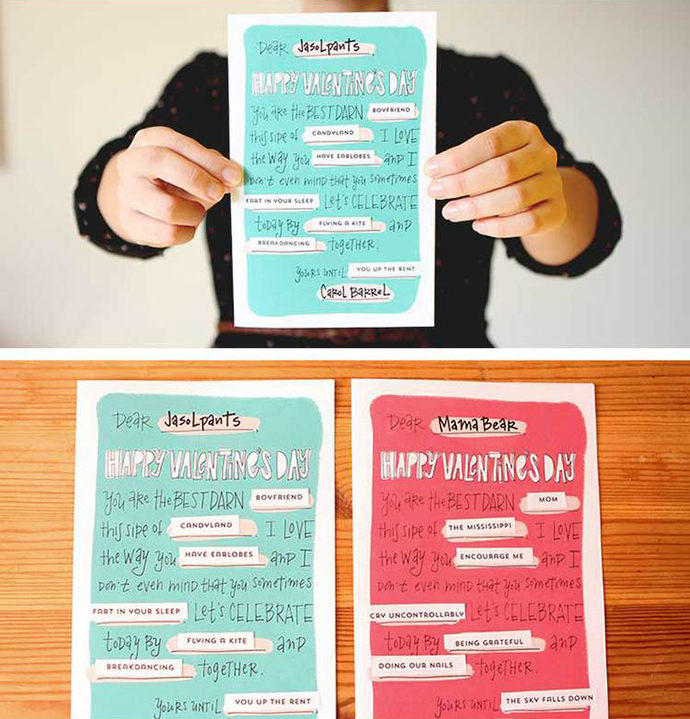 Dear Jasolpants
HAPPY VALENTINE'S DAY
You are the BEST DARN BOYFRIEND
this side of CANDYLAND I LOVE
the way you HAVE EARLOBES and I
Don't even mind that you sometimes
FART IN YOUR SLEEP. Let's CELEBRATE
today by FLYING A KITE and
BREAKDANCING together.
Yours until YOU UP THE RENT
Carol Barrel
Dear Jasolpants
HAPPY VALENTINE'S DAY
You are the BEST DARN BOYFRIEND
this side of CANDYLAND. I LOVE
the way you HAVE EARLOBES and I
Don't even mind that you sometimes
FART IN YOUR SLEEP Let's CELEBRATE
today by FLYING A KITE and
BREAKDANCING together.
Yours until YOU UP THE RENT
Dear Mama Bear
HAPPY VALENTINE'S DAY
You are the BEST DARN MOM
this side of THE MISSISSIPPI. I LOVE
the way you ENCOURAGE ME and I
Don't even mind that you sometimes
CRY UNCONTROLLABLY Let's CELEBRATE
today by BEING GRATEFUL and
DOING OUR NAILS together.
Yours until THE SKY FALLS DOWN